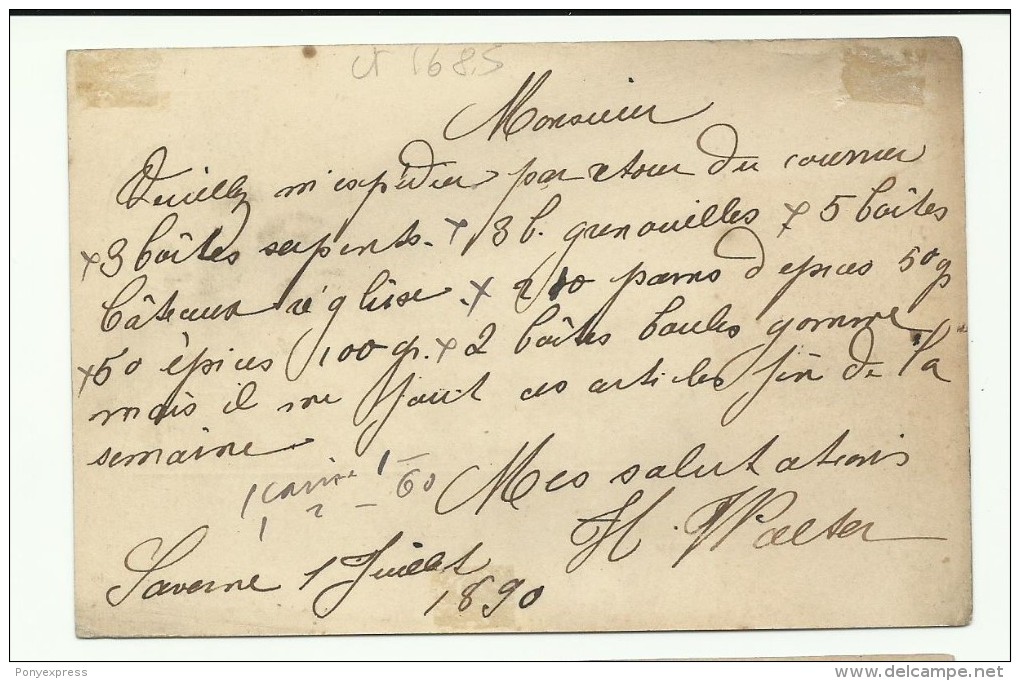 ct 168.5
Monsieur
Veuillez m'expédier par retour du courrier
x 3 boîtes serpents. x 3 b. grenouilles x 5 boîtes
bâteaux réglisse. x 210 pains d'épices 50 gr
x 50 épices 100 gr. x 2 boîtes boules gomme
mais il me faut ces articles fin de la
semaine
Mes salutations
H. Walter
1 - 60
1 2 -
Saverne 1 Juillet
1890
Ponyexpress
delcampe.net